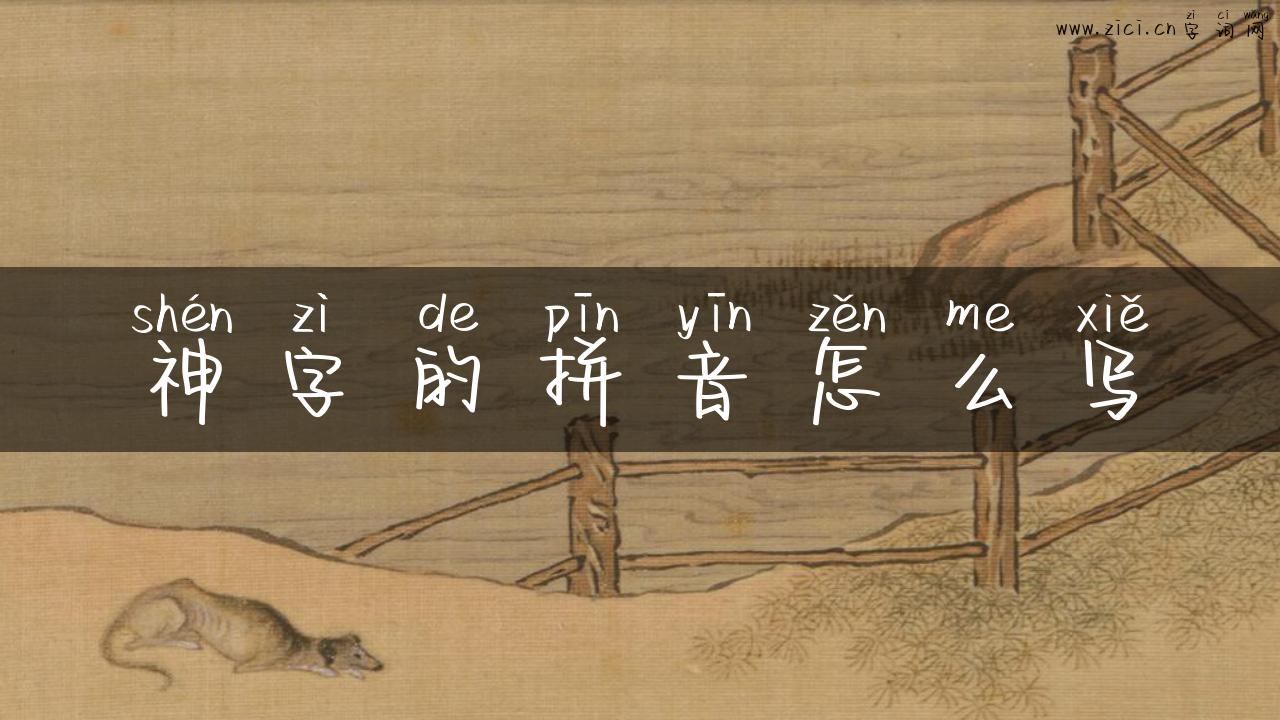 zi ci wang
www.zici.cn字词网
shén zì de pīn yīn zěn me xiě
神字的拼音怎么写